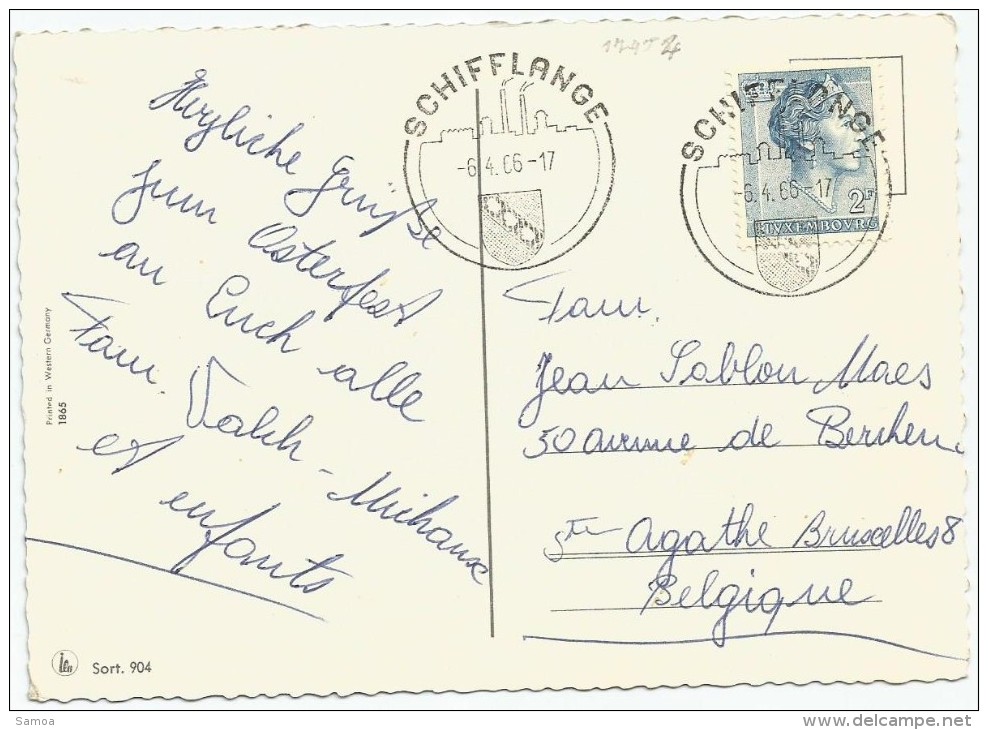 Herzliche Grüsse
zum Osterfest
an Euch alle
Fam. Valch-Michaux
et enfants
Printed in Western Germany
1865
Sort. 904
SCHIFFLANGE
-6.4.66-17
SCHIFFLANGE
-6.4.66-17
2F
LVXEMBOVRG
Fam.
Jean Sablon Maes
50 avenue de Berchem
Ste Agathe Bruxelles 8
Belgique
Samoa
delcampe.net